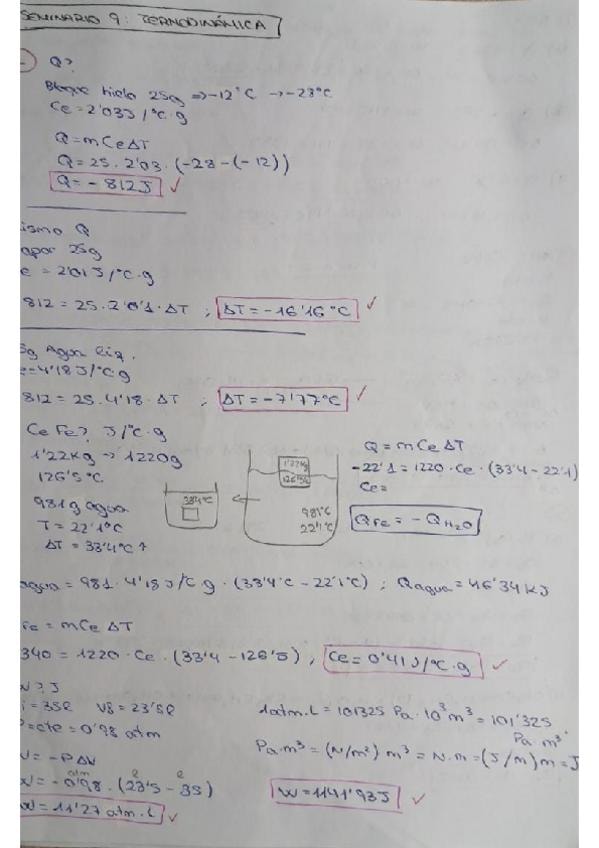 SEMINARIO 9: TERMODINÁMICA
Q?
Bloque hielo 25g => -12°C → -28°C
Ce = 2'03J/°C·g
Q = mCeΔT
Q = 25·2'03·(-28-(-12))
Q = -812J ✓
ismo Q
apor 25g
e = 2'01J/°C·g
812 = 25·2'01·ΔT ; ΔT = -16'16°C ✓
5g Agua liq.
e=4'18J/°C·g
812 = 25·4'18·ΔT ; ΔT = -7'77°C ✓
Ce Fe? J/°C·g
1'22Kg → 1220g
126'5°C
981g agua
T = 22'1°C
ΔT = 33'4°C
33'4°C
1'22Kg
126'5°C
981°C
22'1°C
Q = mCeΔT
-22'1 = 1220·Ce·(33'4-22'1)
Ce=
QFe = -QH₂O
agua = 981·4'18J/°C g·(33'4°C-22'1°C) ; Qagua = 46'34KJ
Fe = mCeΔT
340 = 1220·Ce·(33'4-126'5) ; Ce = 0'41J/°C·g ✓
W? J
i = 35l Vf = 23'5l
P=cte = 0'98 atm
W = -PΔV
W = -0'98 atm·(23'5 l - 35 l)
W = 11'27 atm·L ✓
1atm·L = 101325 Pa·10³m³ = 101'325 Pa·m³
Pa·m³ = (N/m²) m³ = N·m = (J/m)m = J
W = 1141'93J ✓